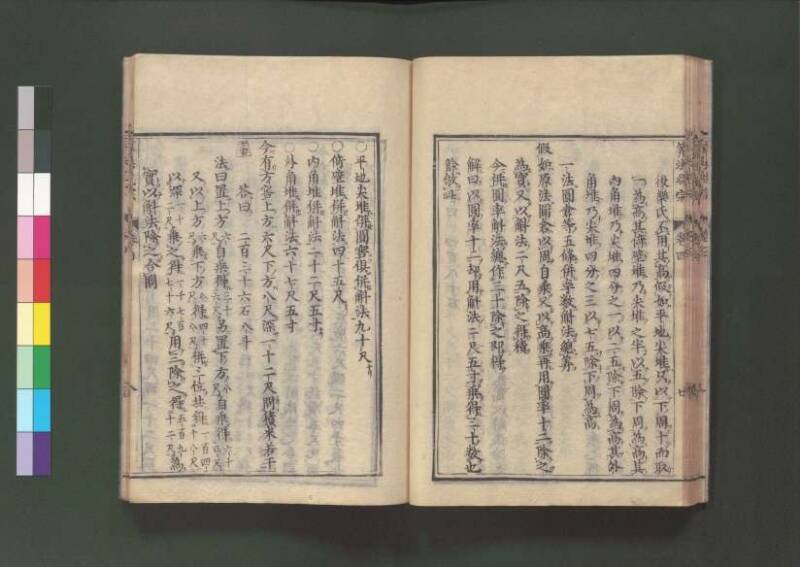 後樂氏不用其高假如平地尖堆只以下周十而取
一為高其倚壁堆乃尖堆之半以五除下周為高其
內角堆乃尖堆四分之一以二五除下周為高其外
角堆乃尖堆四分之三以七五除下周為高
一法圓倉等五條併率數斛法總筭
假如原法圓倉以周自乘又以高乘再用圓率十二除之
為實又以斛法二尺五除之得積
今併圓率斛法總作三十除之即得
解曰以圓率十二却用斛法二尺五寸乘得三十數也
餘倣此
○平地尖堆併圓率復併斛法九十尺
○倚壁堆併斛法四十五尺
○內角堆併斛法二十二尺五寸
○外角堆併斛法六十七尺五寸
今有方窖上方六尺下方八尺深一十二尺問積米若干
答曰 二百三十六石八斗
法曰置上方六尺自乘得三十六尺另置下方八尺自乘得六十四尺
又以上方六尺乘下方八尺得四十八尺併三位共得一百四十八尺
以深一十二尺乘之得一千七百七十六尺用三除之得五百九十二尺為
實以斛法除之合問